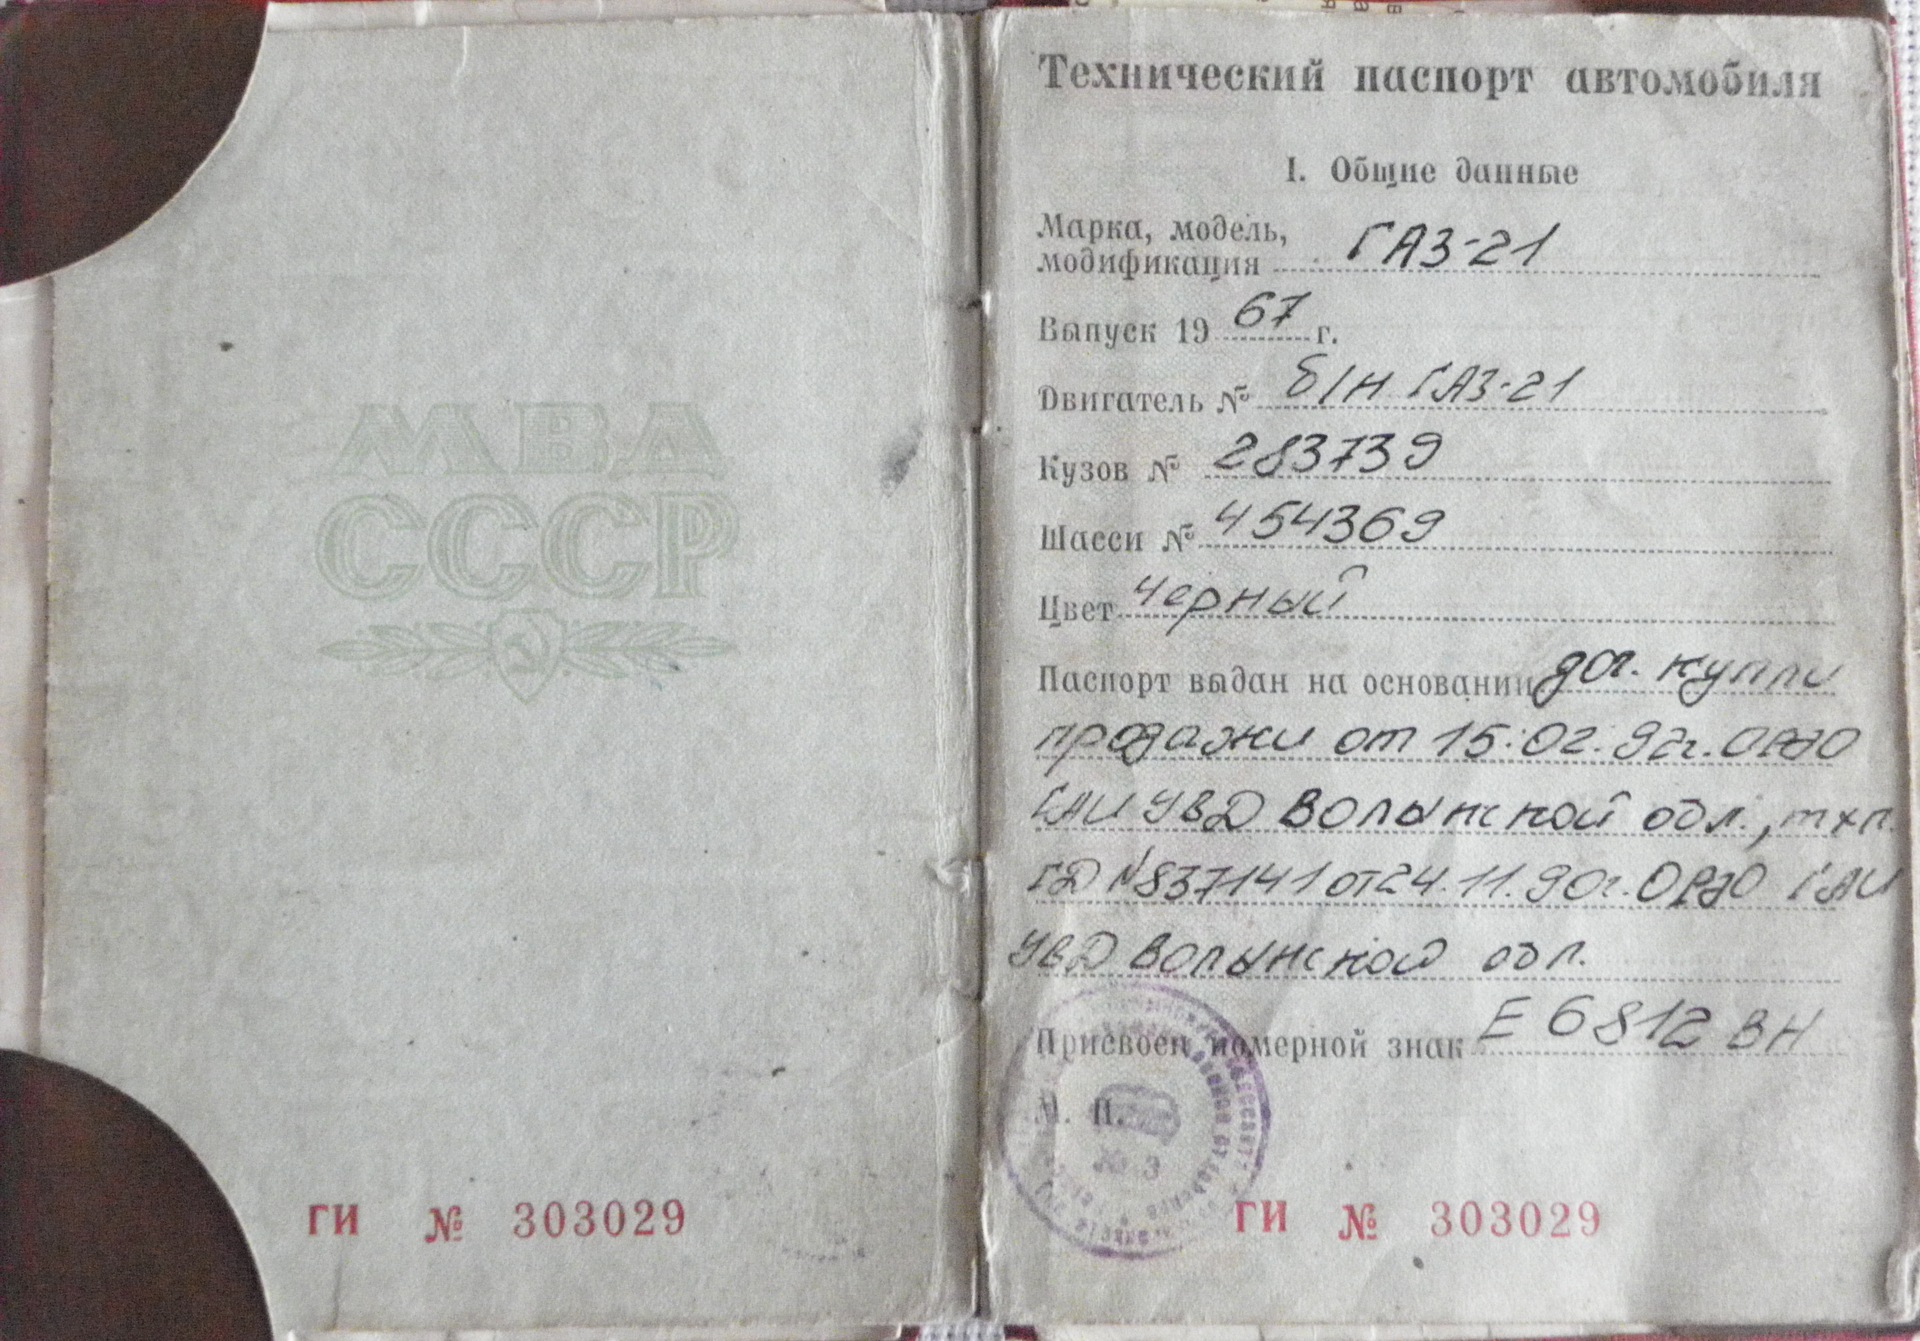 МВД
СССР
ГИ № 303029
Технический паспорт автомобиля
I. Общие данные
Марка, модель,
модификация ГАЗ-21
Выпуск 19 67 г.
Двигатель № б/н ГАЗ-21
Кузов № 283739
Шасси № 454369
Цвет черный
Паспорт выдан на основании дог. купли
продажи от 15.02.92г. ОРЭО
ГАИ УВД Волынской обл., тхп.
ГД №837141 от 24.11.90г. ОРЭО ГАИ
УВД Волынской обл.
Присвоен номерной знак Е 6812 ВН
М. П.
№ 3
ГИ № 303029